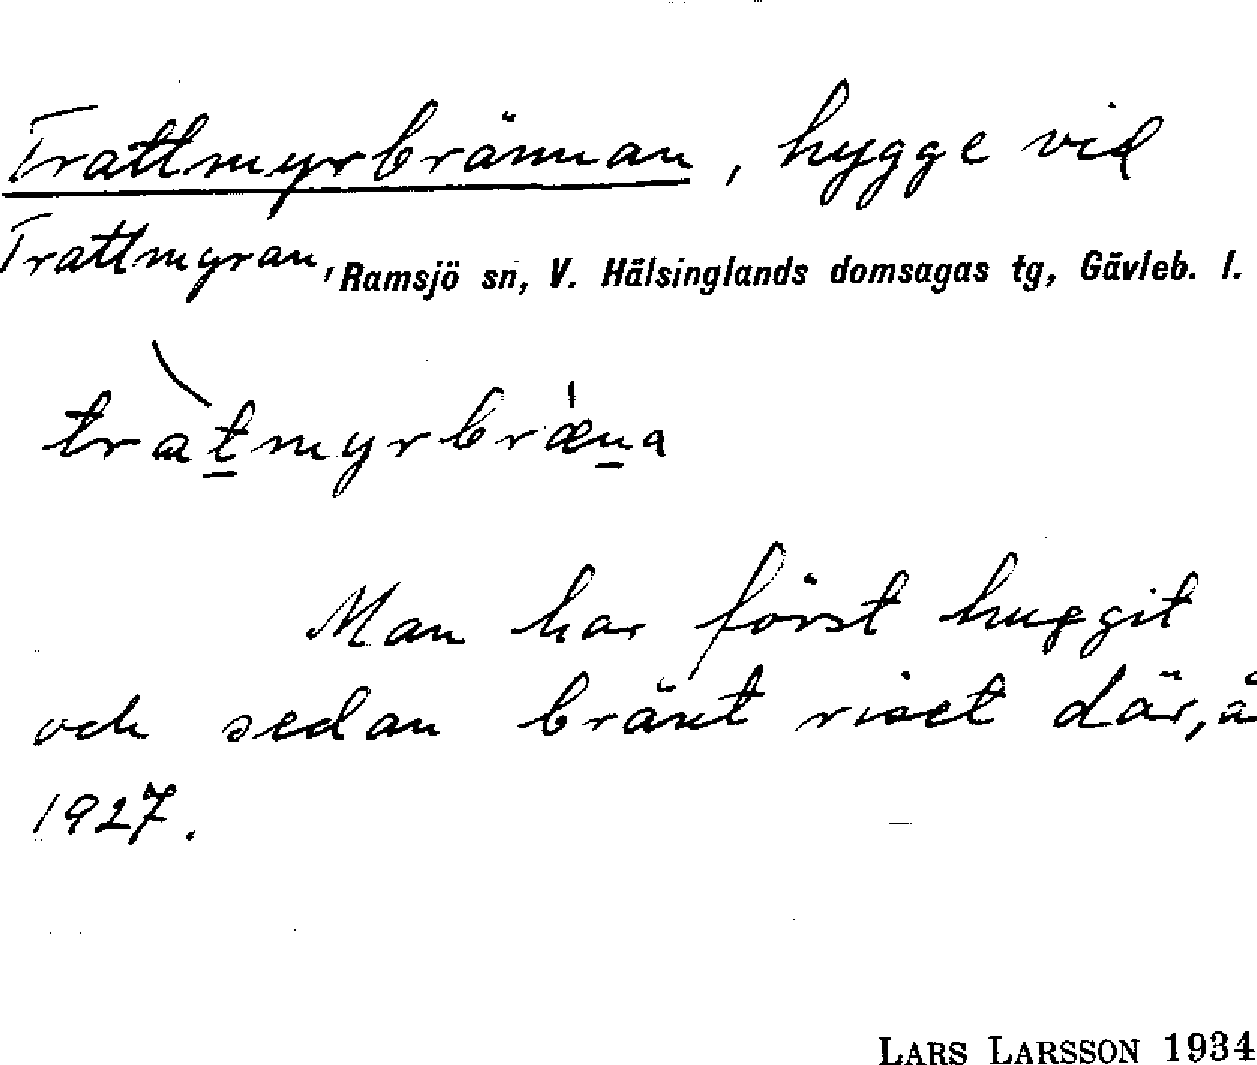 Trattmyrbrännan, hygge vid
Trattmyran, Ramsjö sn, V. Hälsinglands domsagas tg, Gävleb. l.
tratmyrbræna
Man har först huggit
och sedan bränt riset där, å
1927.
LARS LARSSON 1934